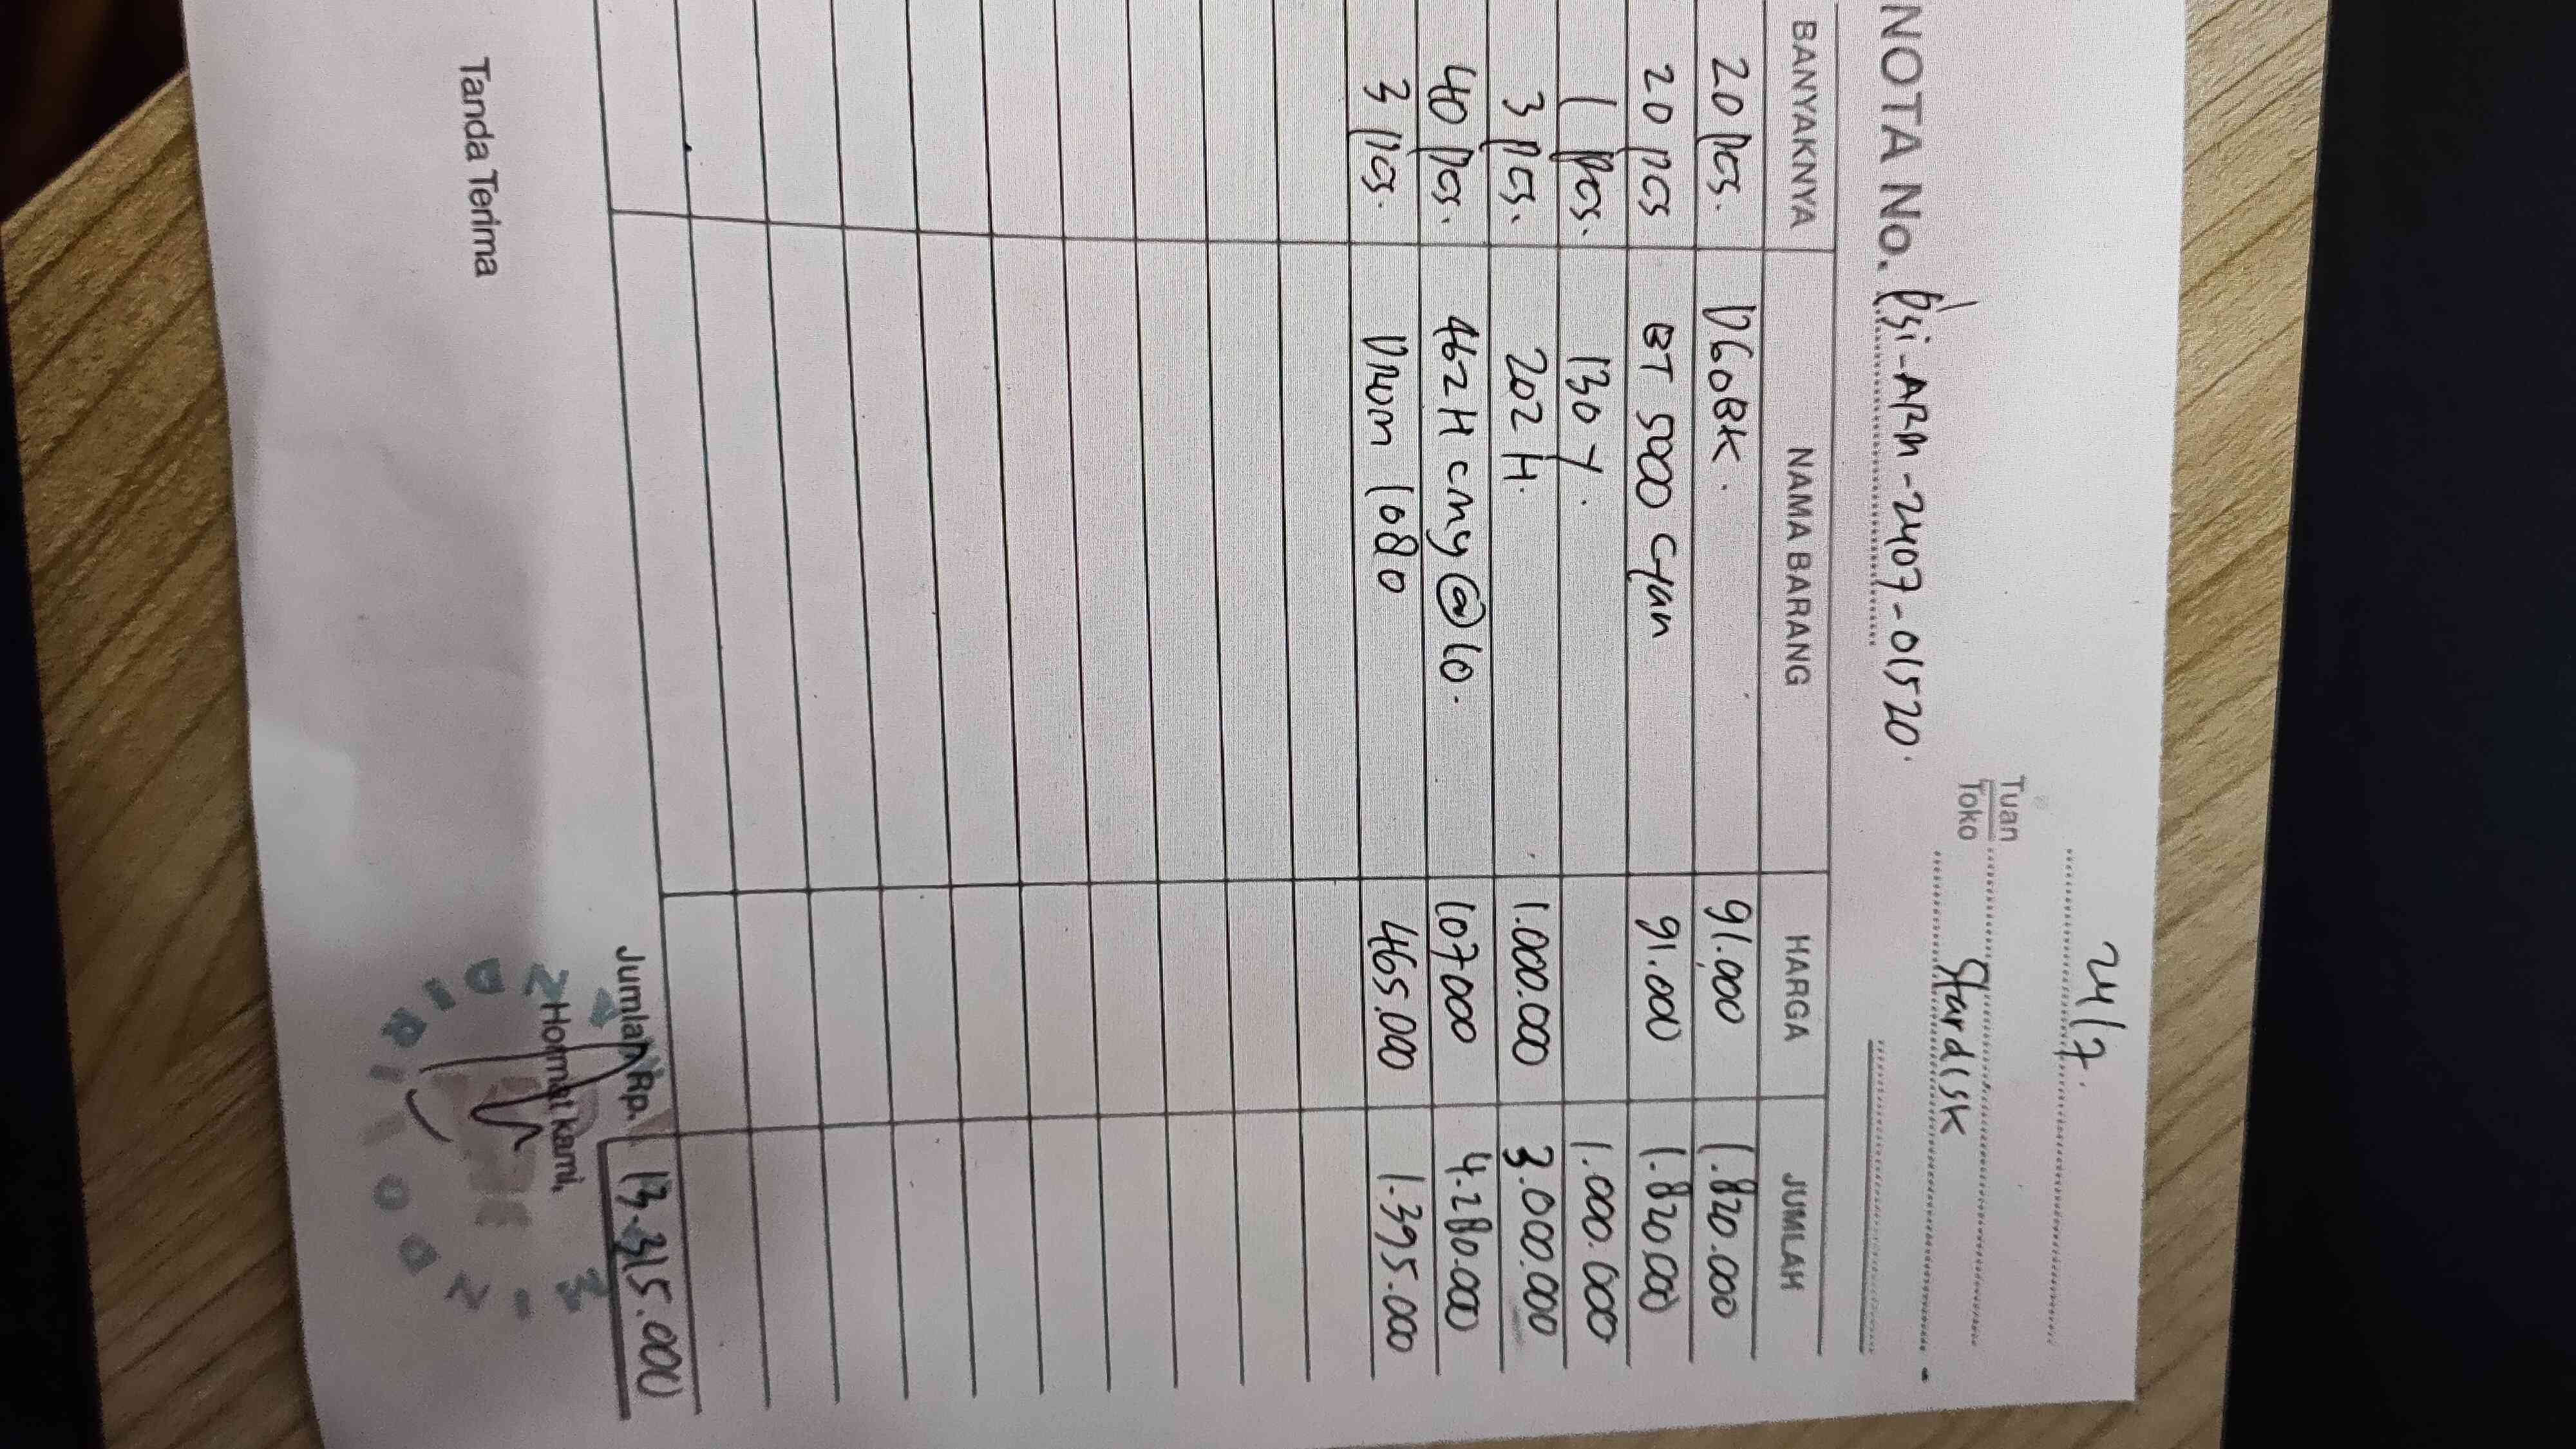 24/7.
Tuan
Toko
Stardisk
NOTA No. Psi-ARM-2407-01520.
BANYAKNYA NAMA BARANG HARGA JUMLAH
20 pcs. D60BK. 91.000 1.820.000
20 pcs BT 5000 Cyan 91.000 1.820.000
1 pcs. 130 Y. 1.000.000
3 pcs. 202 H. 1.000.000 3.000.000
40 pcs. 462 H cmy @10. 107000 4.280.000
3 pcs. Drum 1080 465.000 1.395.000
Jumlah Rp. 13.315.000
Tanda Terima Hormat kami,